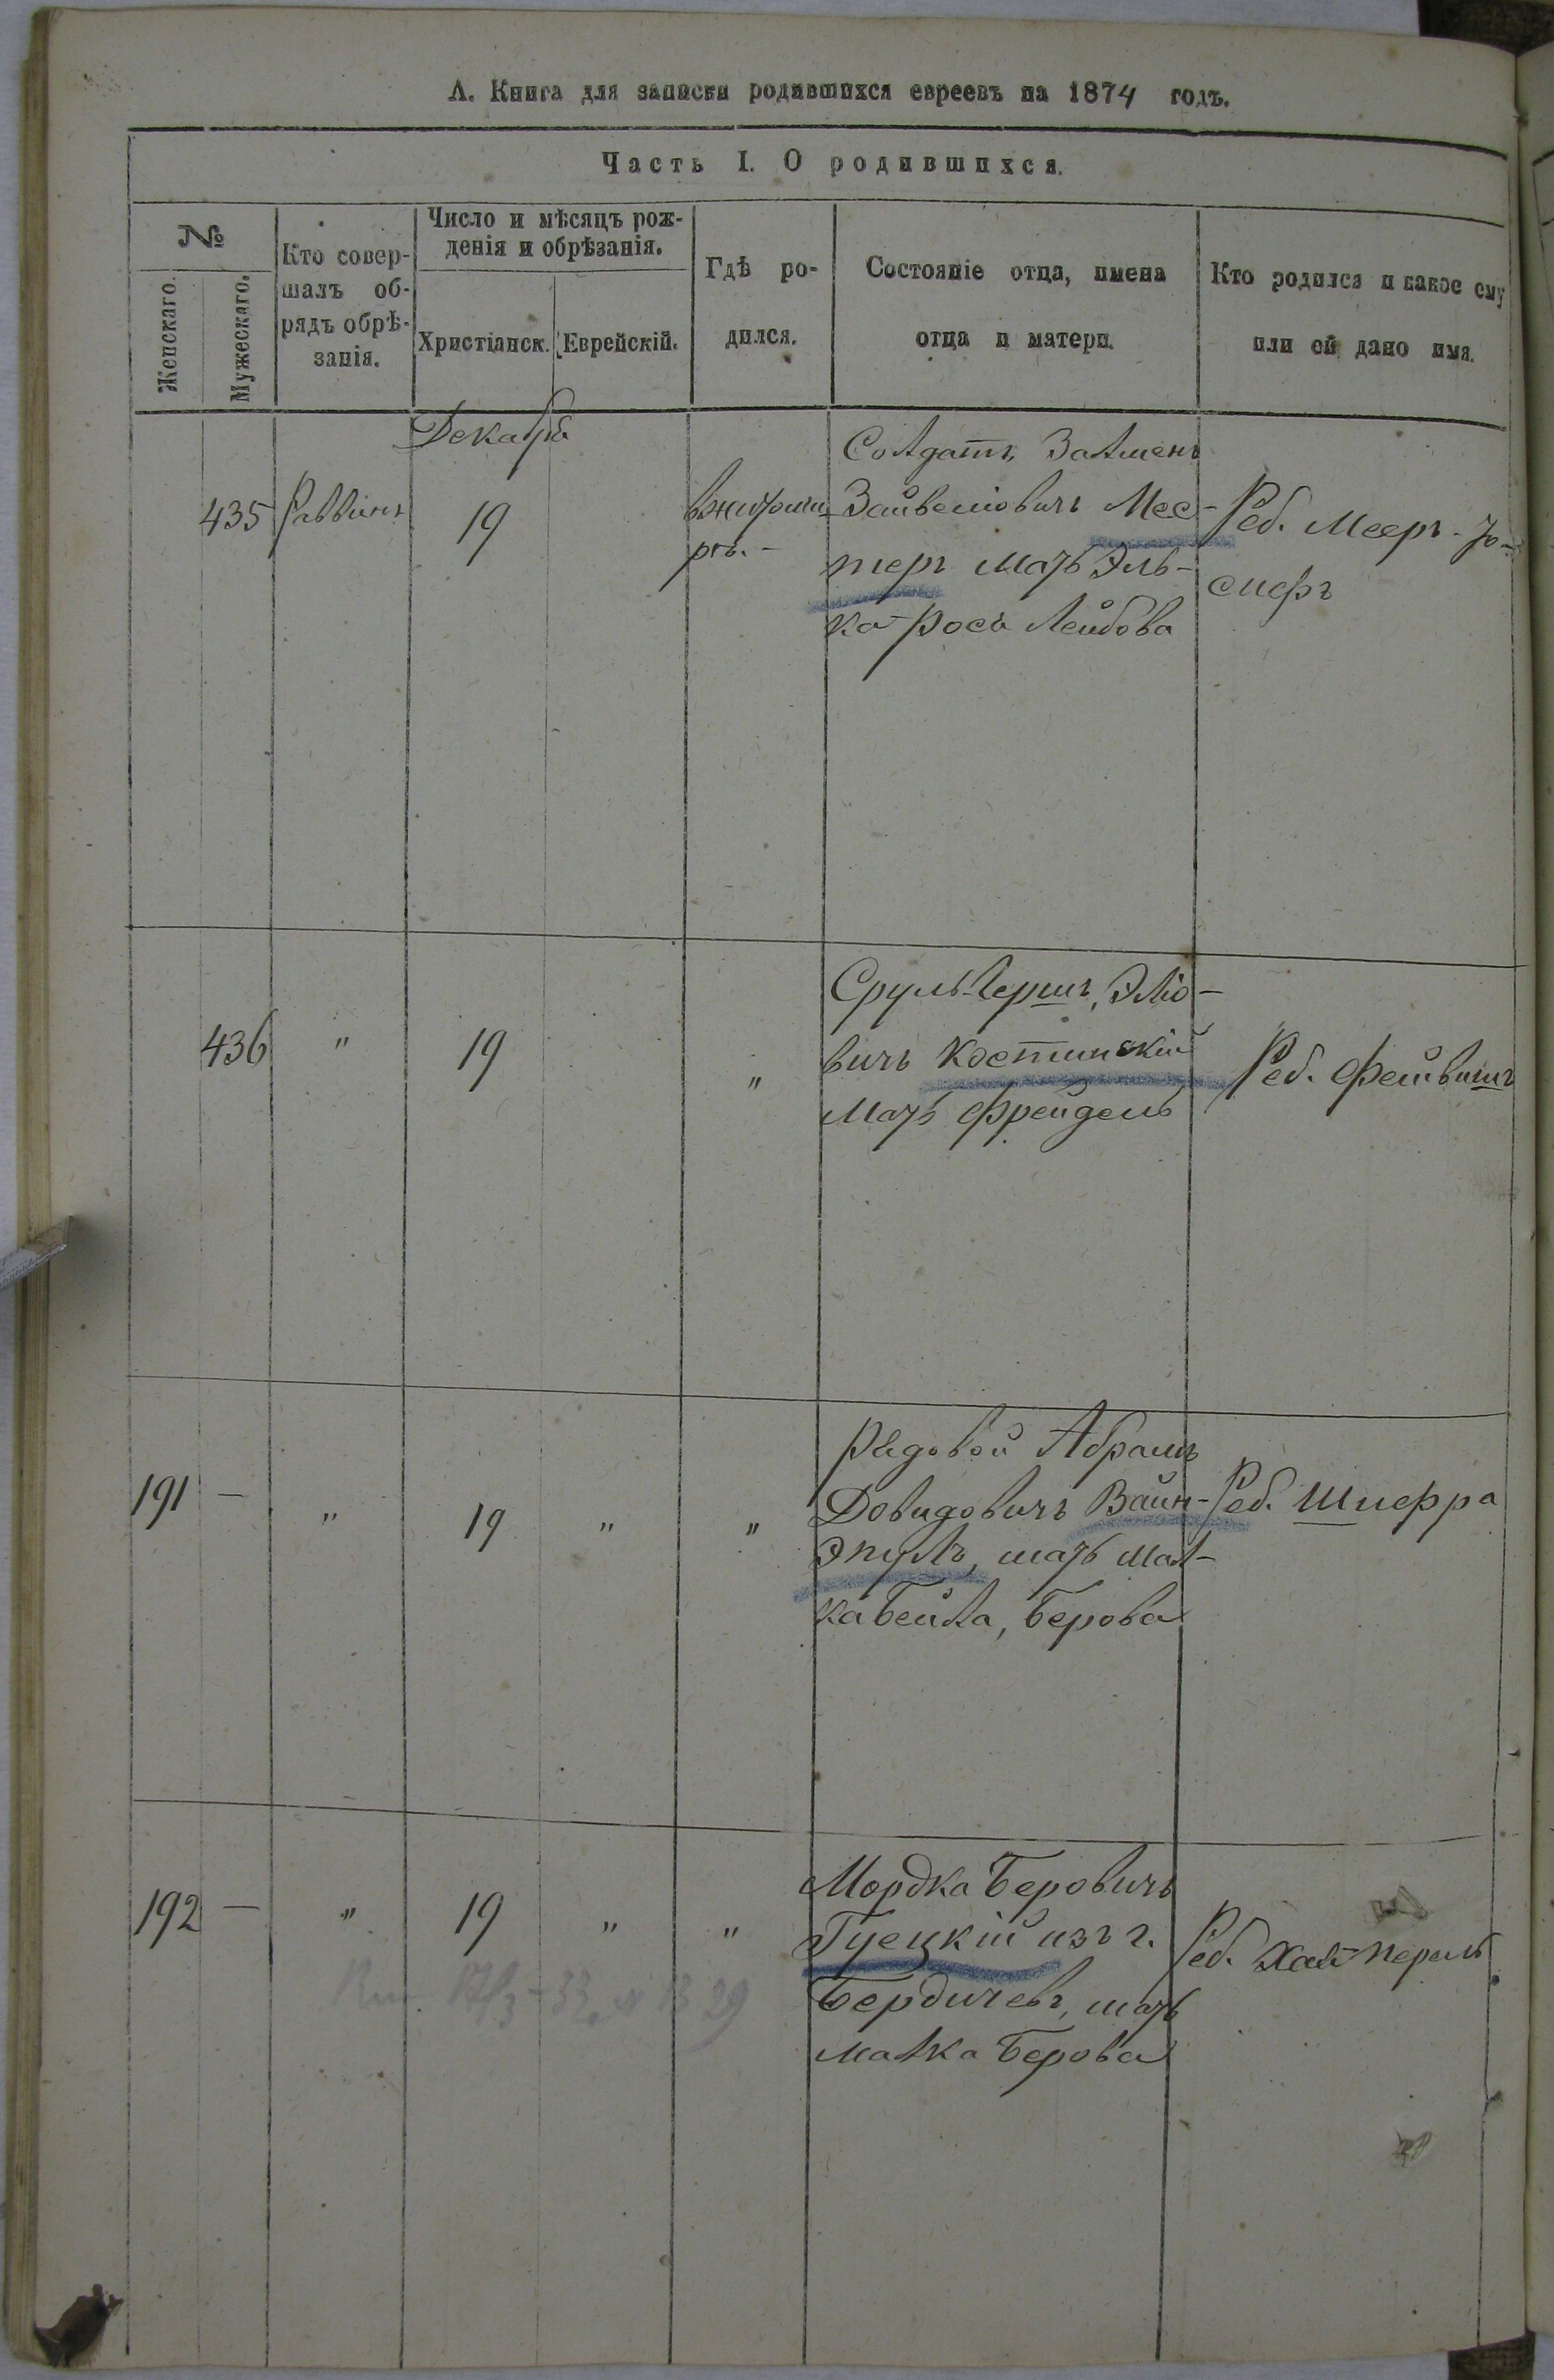 А. Книга для записки родившихся евреевъ на 1874 годъ.
Часть I. О родившихся.
№
Женскаго.
Мужескаго.
Кто совер-
шалъ об-
рядъ обрѣ-
занія.
Число и мѣсяцъ рож-
денія и обрѣзанія.
Христіанск.
Еврейскій.
Гдѣ ро-
дился.
Состояніе отца, имена
отца и матери.
Кто родился и какое ему
или ей дано имя.
Декабрь
435
Раввинъ
19
Вжитоми
рѣ.-
Солдатъ Залменъ
Зайвелювичъ Мес-
теръ мать Эль-
ка-Рося Лейбова
Реб. Мееръ-Іо-
сифъ
436
"
19
"
Сруль-Гершъ, Эліо-
вичъ Костинскій
Мать Фрейдель
Реб. Фейвишъ
191
-
"
19
"
"
Рядовой Абрамъ
Довидовичъ Вайн-
мать Мал-
ка Бейла, Берова
Реб. Шифра
192
-
"
19
"
"
Мордка Беровичъ
изъ г.
Бердичевъ, мать
Малка Берова
Реб. Хая-Перель